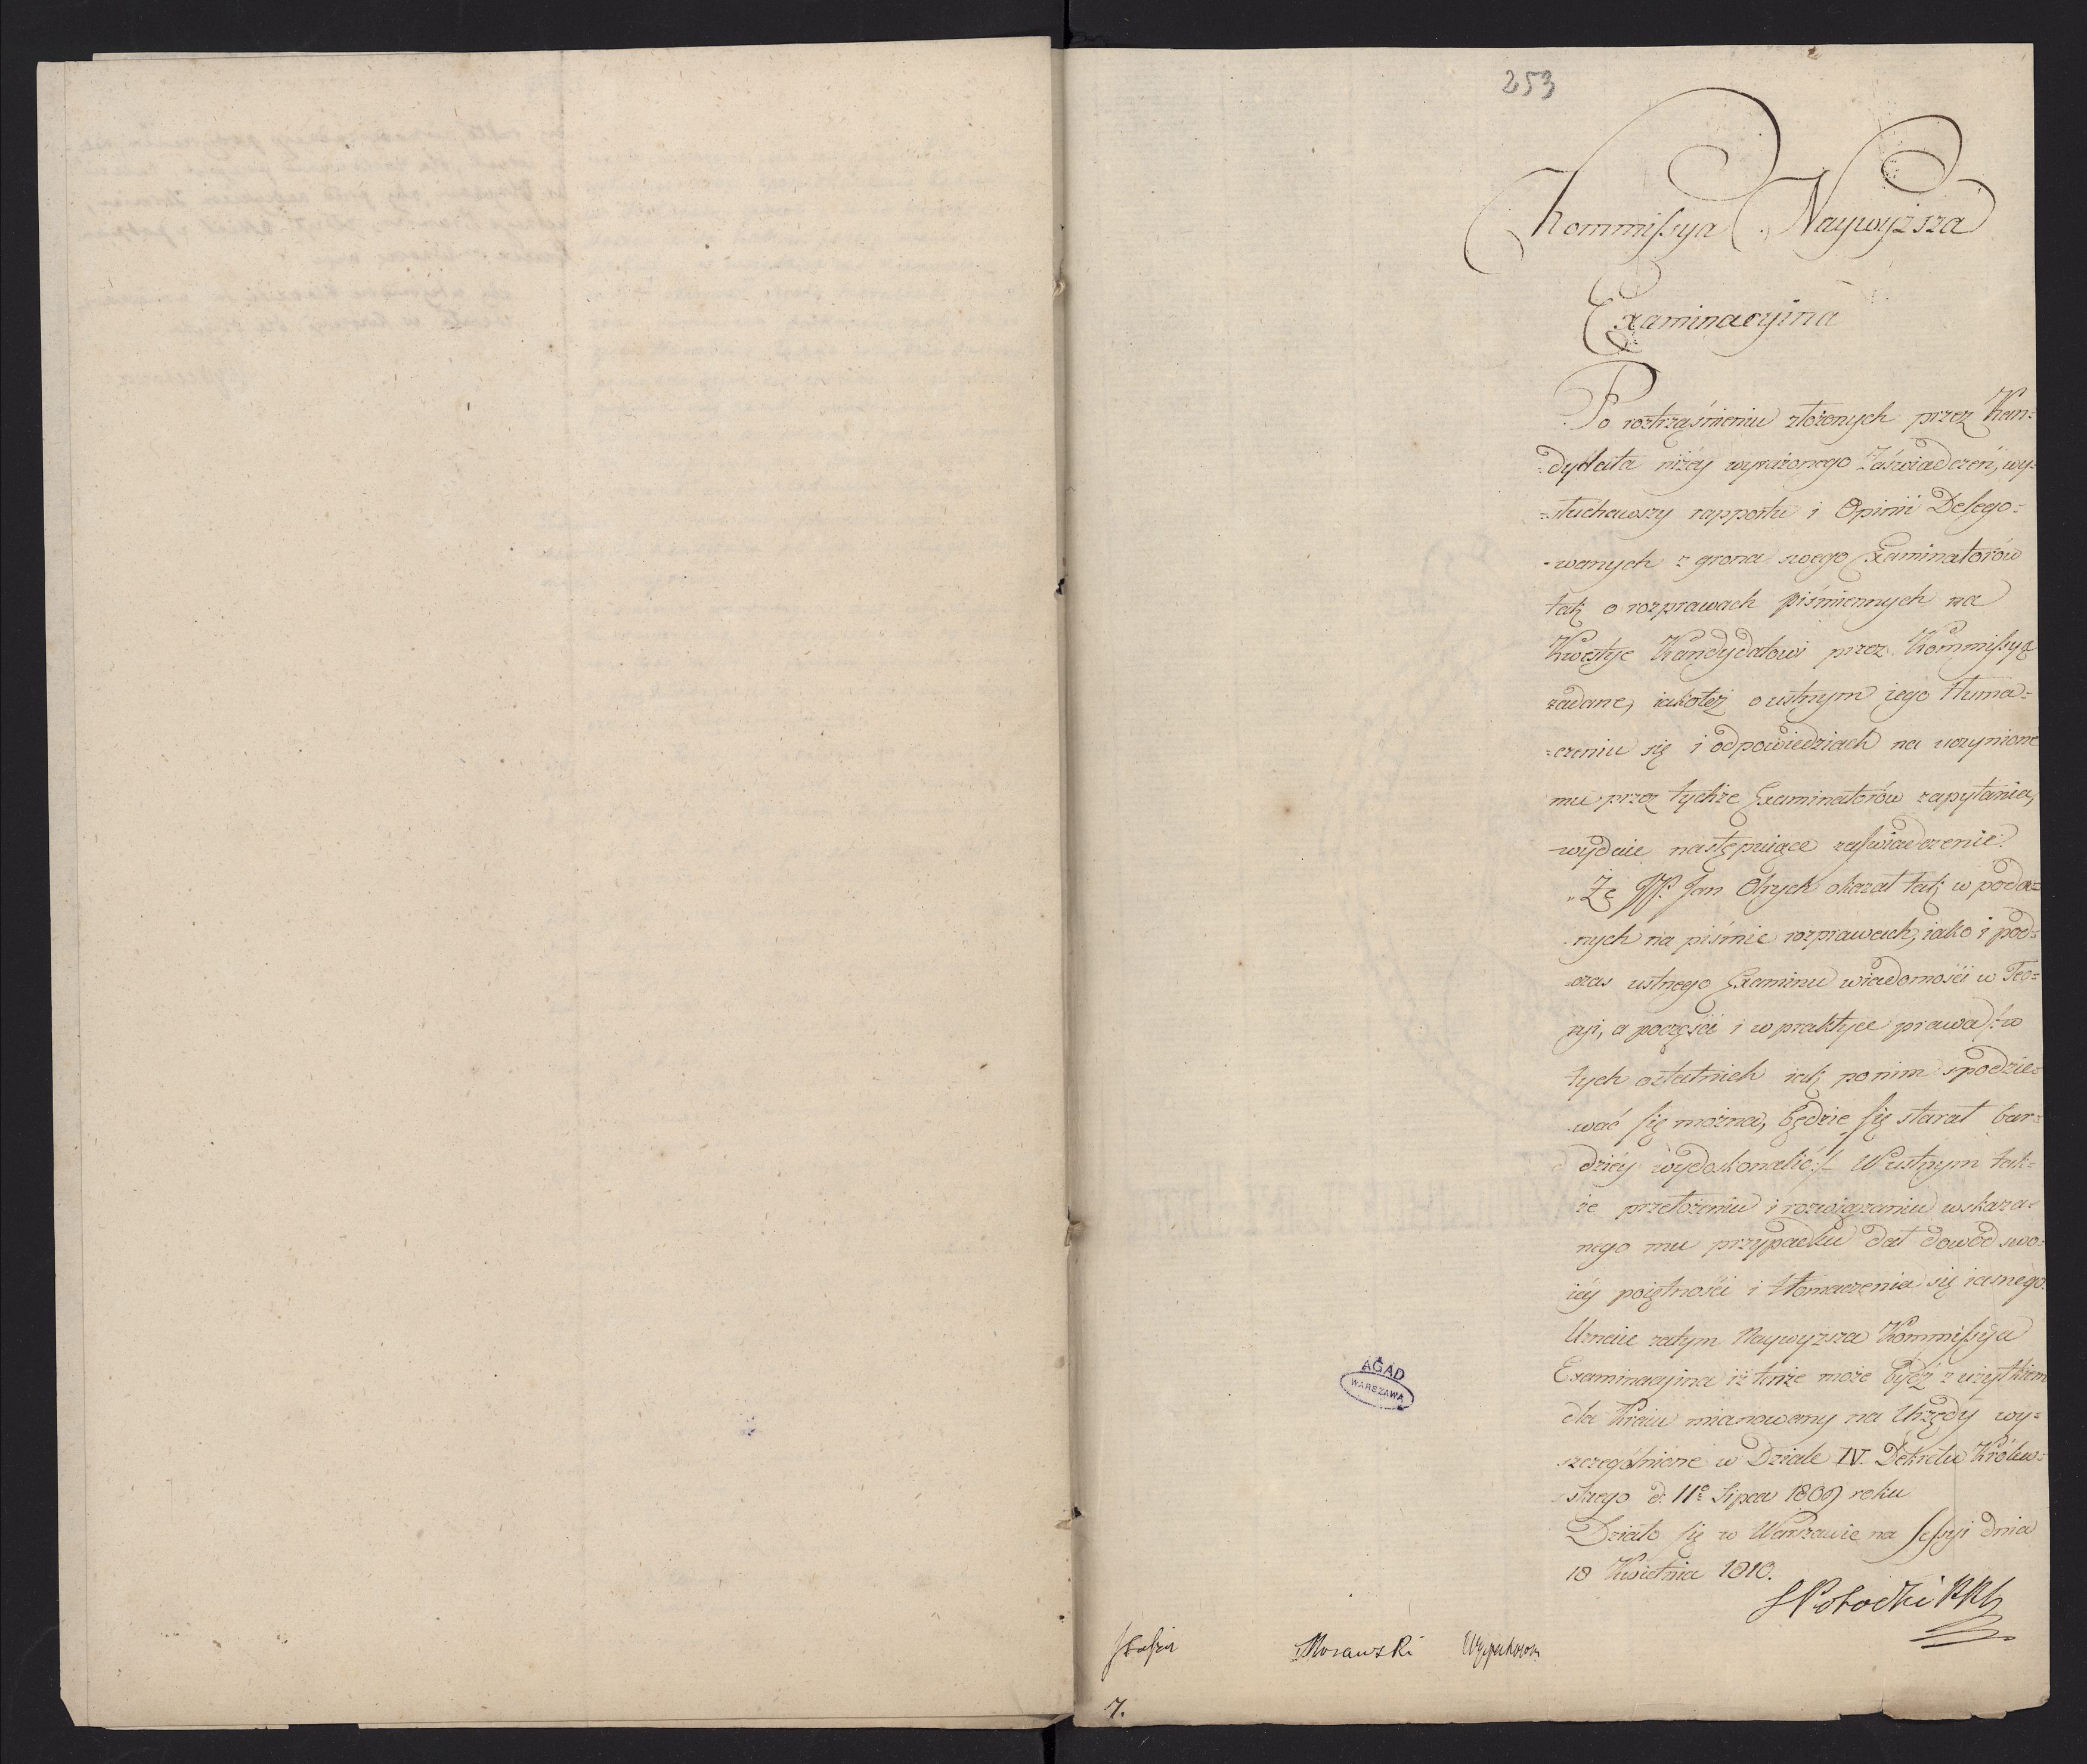 253
Kommissya Naywyższa
Examinacyina
Po roztrząśnieniu złożonych przez Kan=
=dydata niżéy wyrażonego Zaświadczeń, wy=
=słuchawszy rapportu i Opinii Delego=
=wanych z grona swego Examinatorów
tak o rozprawach piśmiennych na
Kwestye Kandydatowi przez Kommissyą
zadane, iakoteż o ustnym iego tłuma=
=czeniu się i odpowiedziach na uczynione
mu przez tychże Examinatorów zapytania,
wydaie następuiące zaświadczenie:
„Że JP. Jan okazał tak w poda=
nych na piśmie rozprawach, iako i pod=
czas ustnego Examinu wiadomości w Teo=
ryi, a poczęści i w praktyce prawa /:w
tych ostatnich iak po nim spodzie=
wać się można, będzie się starał bar=
dziéy wydoskonalić:/ W ustnym tak=
że przełożeniu i rozwiązaniu wskaza=
nego mu przypadku dał dowód swo=
iéy poiętności i tłomaczenia się iasnego.
Uznaie zatym Naywyższa Kommissya
Examinacyina iż tenże może bydź z użytkiem
dla Kraiu mianowany na Urzędy wy=
szczególnione w Dziale IV. Dekretu Królew=
skiego d. 11º Lipca 1809 roku
Działo się w Warszawie na sessyi dnia
18 Kwietnia 1810.
SPotocki
Staszic Morawski
7.
AGAD
WARSZAWA